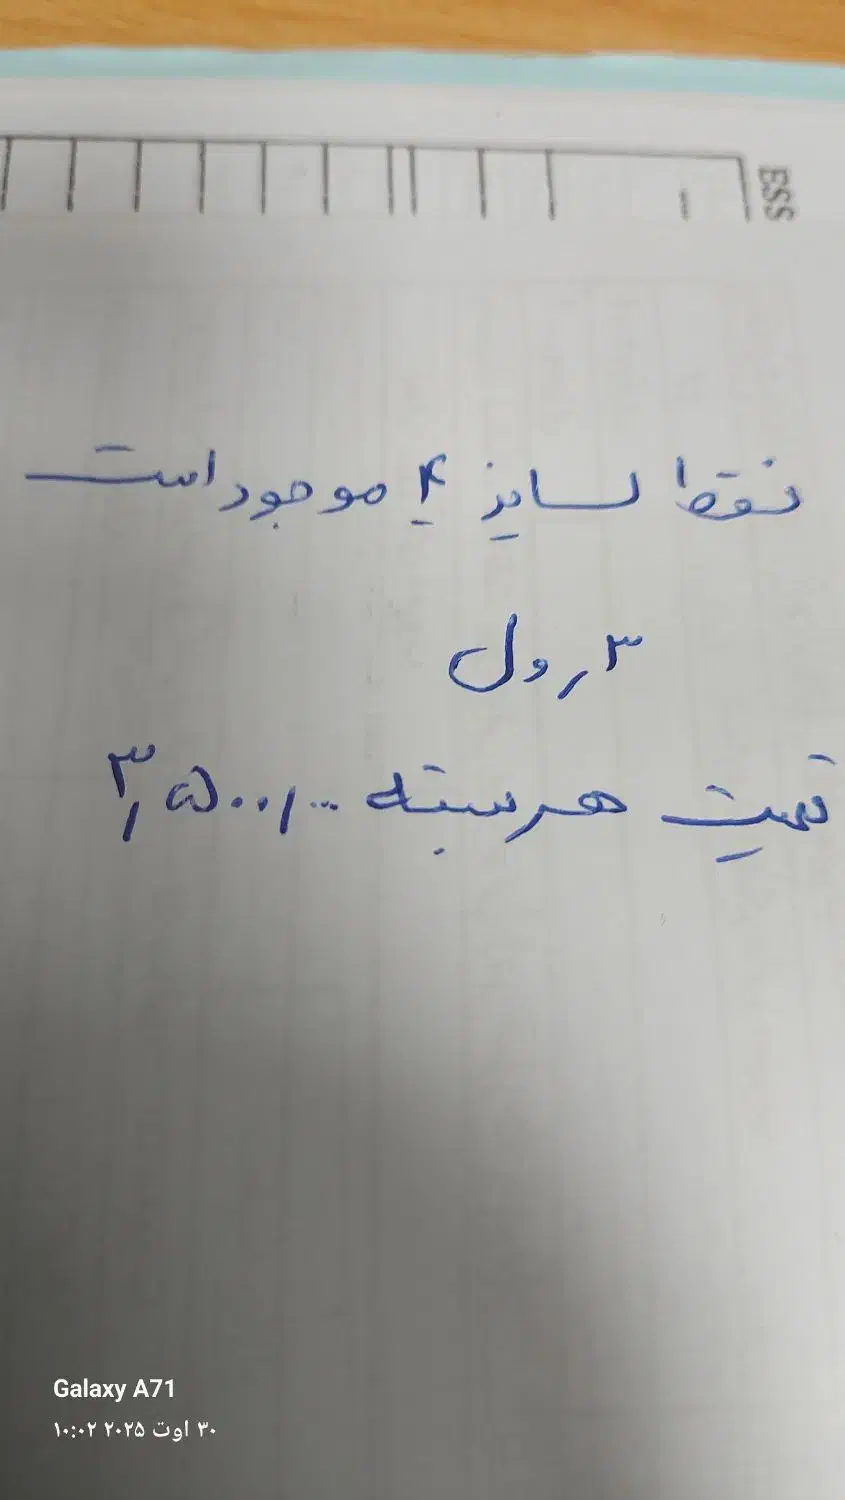 ESS
فقط سایز ۴ موجود است
۳ رول
قیمت هر بسته ۳,۵۰۰,۰۰۰
Galaxy A71
۳۰ اوت ۲۰۲۵ ۱۰:۰۲